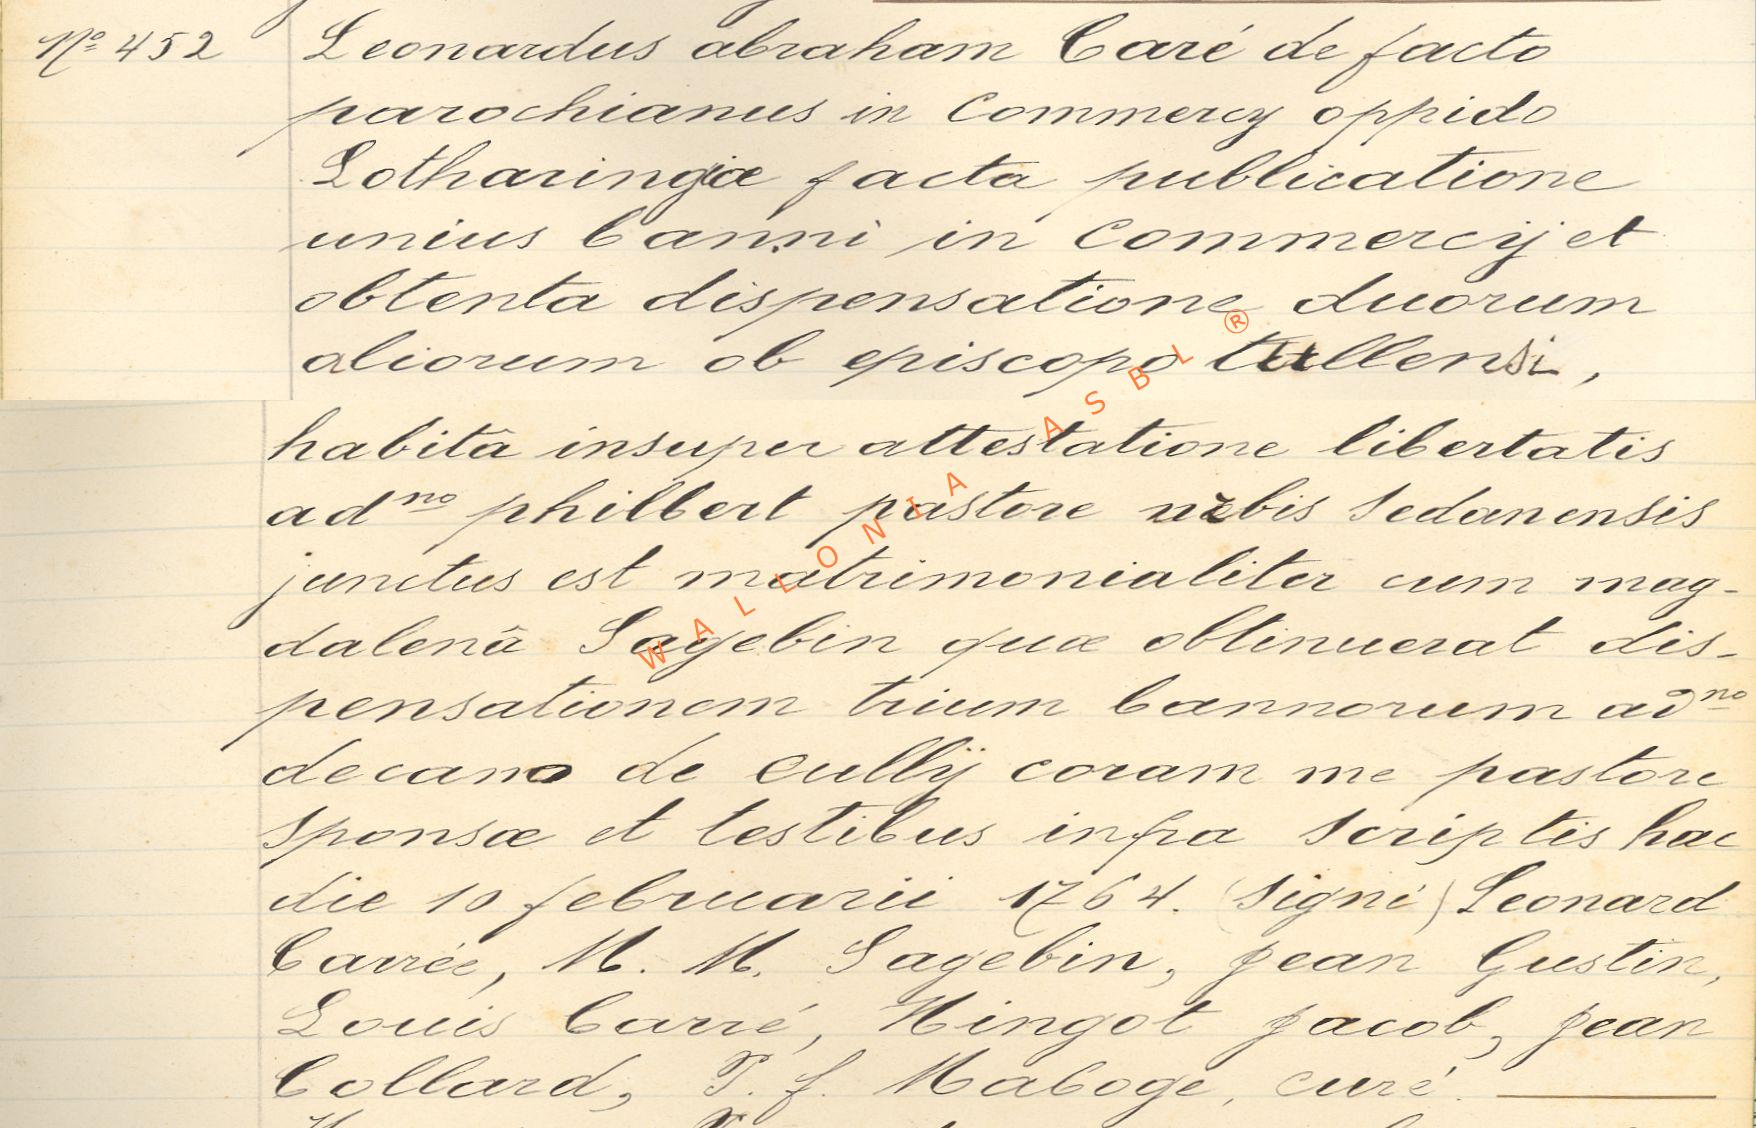 Nº 452 Leonardus abraham Caré de facto
parochianus in Commercy oppido
Lotharingiæ facta publicatione
unius banni in Commercij et
obtenta dispensatione duorum
aliorum ob episcopo tullensi,
habitâ insuper attestatione libertatis
adno philbert pastore urbis Sedanensis
junctus est matrimonialiter cum mag-
dalenâ Sagebin quæ obtinuerat dis-
pensationem trium bannorum adno
decano de Cullÿ coram me pastore
sponsæ et testibus infra scriptis hac
die 10 februarii 1764. (Signé) Leonard
Carrée, M. M. Sagebin, Jean Gustin,
Louis Carré, Hingot Jacob, Jean
Collard, T. f. Maboge, curé.
WALLONIA ASBL ®